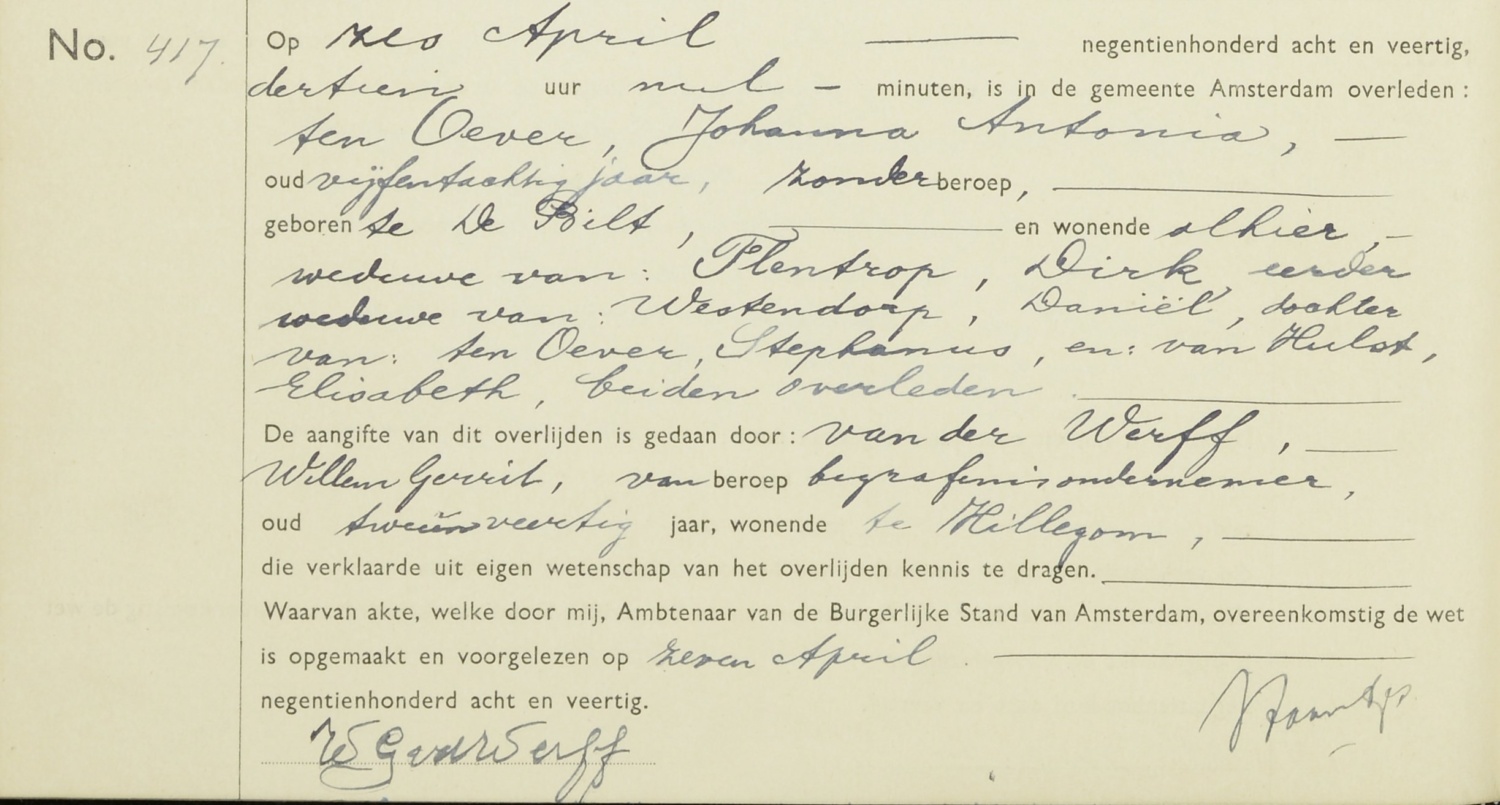 No. 417.
Op zes April — negentienhonderd acht en veertig,
dertien uur nul — minuten, is in de gemeente Amsterdam overleden :
ten Oever, Johanna Antonia, —
oud vijfentachtig jaar, zonder beroep, —
geboren te De Bilt, — en wonende alhier, —
weduwe van: Plentrop, Dirk, eerder
weduwe van: Westendorp, Daniël, dochter
van: ten Oever, Stephanus, en: van Hulst,
Elisabeth, beiden overleden. —
De aangifte van dit overlijden is gedaan door : van der Werff, —
Willem Gerrit, van beroep begrafenisondernemer,
oud tweeënveertig jaar, wonende te Hillegom, —
die verklaarde uit eigen wetenschap van het overlijden kennis te dragen. —
Waarvan akte, welke door mij, Ambtenaar van de Burgerlijke Stand van Amsterdam, overeenkomstig de wet
is opgemaakt en voorgelezen op zeven April. —
negentienhonderd acht en veertig.
W G vd Werff